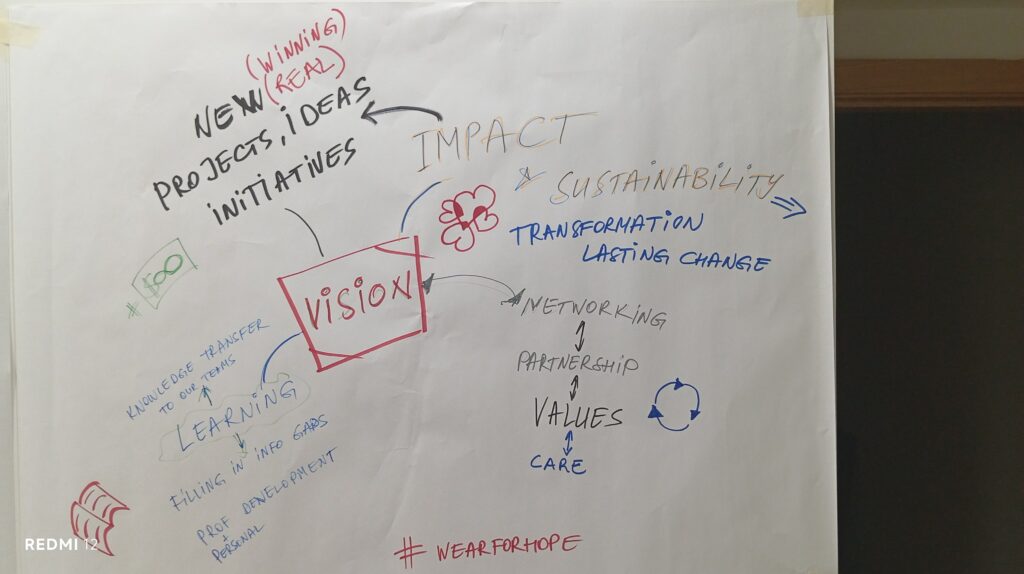 (WINNING)
NEW (REAL)
PROJECTS, IDEAS
INITIATIVES
IMPACT
& SUSTAINABILITY
TRANSFORMATION
LASTING CHANGE
VISION
NETWORKING
PARTNERSHIP
VALUES
CARE
KNOWLEDGE TRANSFER
TO OUR TEAMS
LEARNING
FILLING IN INFO GAPS
PROF DEVELOPMENT
+
PERSONAL
# WEARFORHOPE
REDMI 12